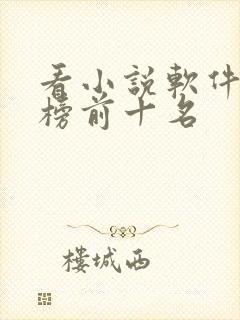 看小說軟件
榜前十名
樓城西